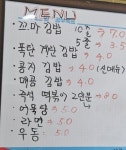 MENU
꼬마김밥 10줄 → 7.0
5줄 → 3.5
폭탄 계란 김밥 4.0
꽁지 김밥 4.0 (신메뉴)
매콤 김밥 4.0
즉석 떡볶이 2인분 8.0
어묵탕 5.0
라면 5.0
우동 5.0